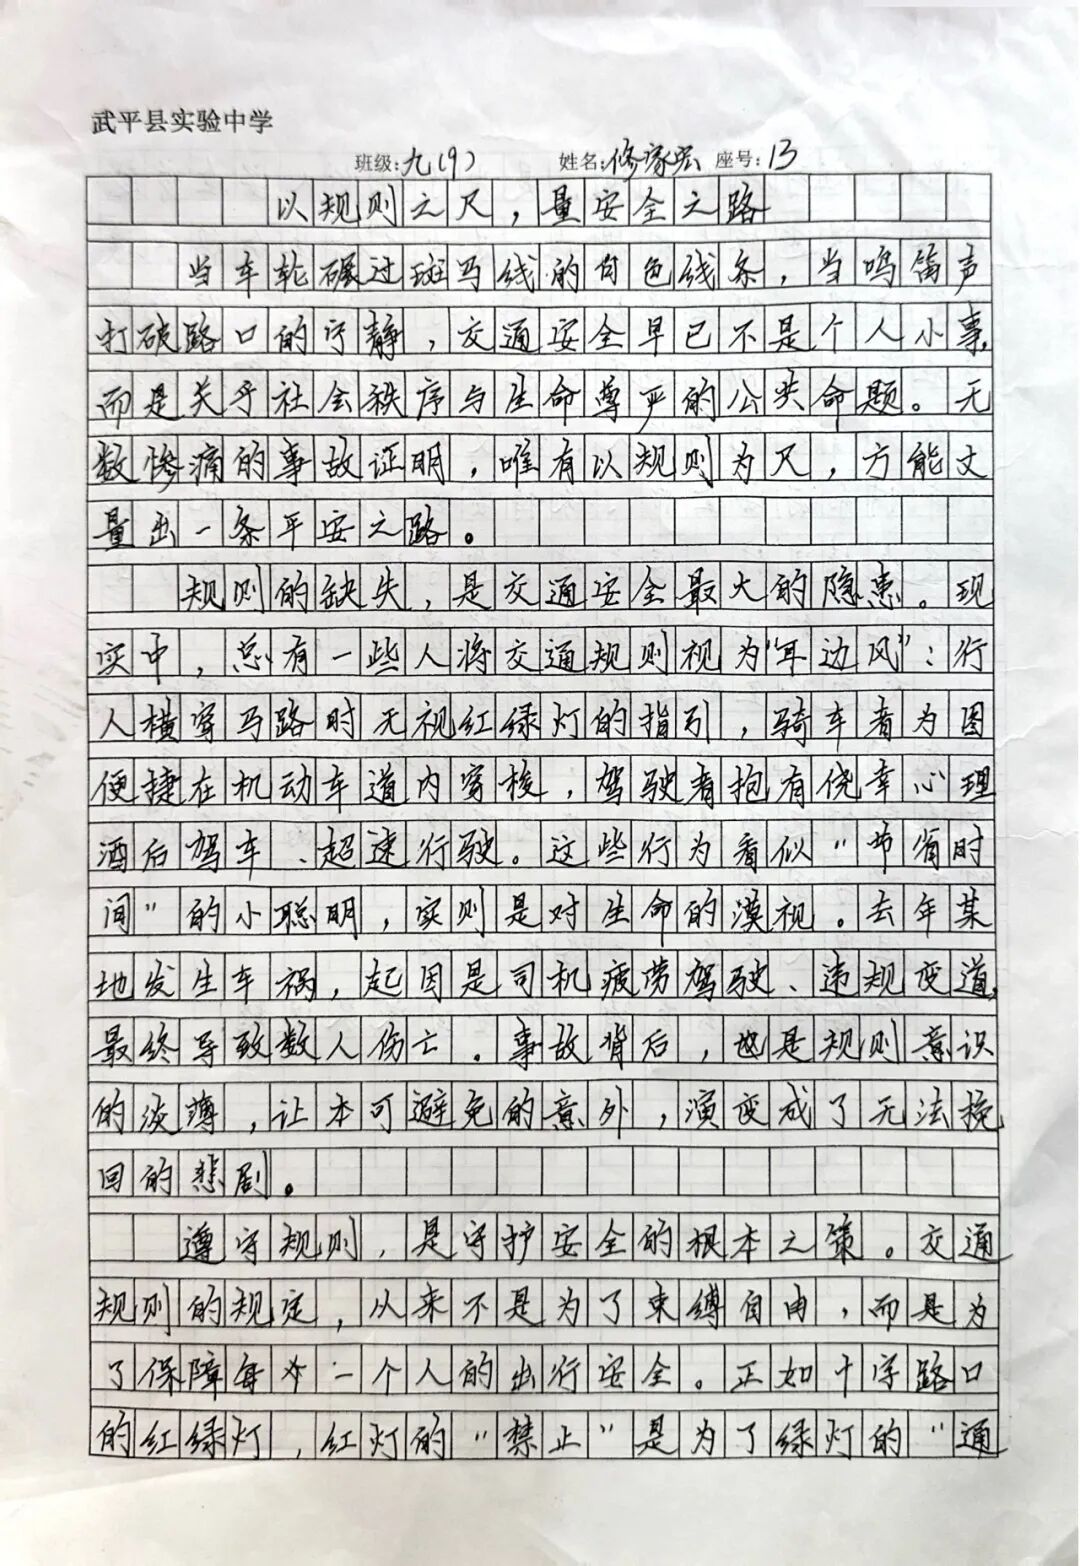 武平县实验中学
班级:九(9) 姓名:修 宏 座号:13
以规则之尺，量安全之路
当车轮碾过斑马线的白色线条，当鸣笛声
打破路口的宁静，交通安全早已不是个人小事，
而是关乎社会秩序与生命尊严的公共命题。无
数惨痛的事故证明，唯有以规则为尺，方能丈
量出一条平安之路。
规则的缺失，是交通安全最大的隐患。现
实中，总有一些人将交通规则视为“耳边风”：行
人横穿马路时无视红绿灯的指引，骑车者为图
便捷在机动车道内穿梭，驾驶者抱有侥幸心理
酒后驾车、超速行驶。这些行为看似“节省时
间”的小聪明，实则是对生命的漠视。去年某
地发生车祸，起因是司机疲劳驾驶、违规变道，
最终导致数人伤亡。事故背后，也是规则意识
的淡薄，让本可避免的意外，演变成了无法挽
回的悲剧。
遵守规则，是守护安全的根本之策。交通
规则的规定，从来不是为了束缚自由，而是为
了保障每一个人的出行安全。正如十字路口
的红绿灯，红灯的“禁止”是为了绿灯的“通